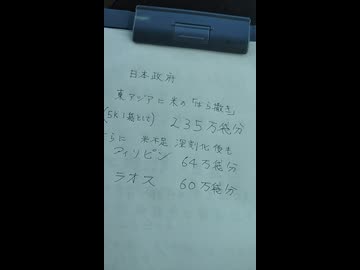 日本政府
東アジアに米の「ばら撒き」
(5K1袋として) 235万袋分
らに 米不足 深刻化後も
フィリピン 64万袋分
ラオス 60万袋分